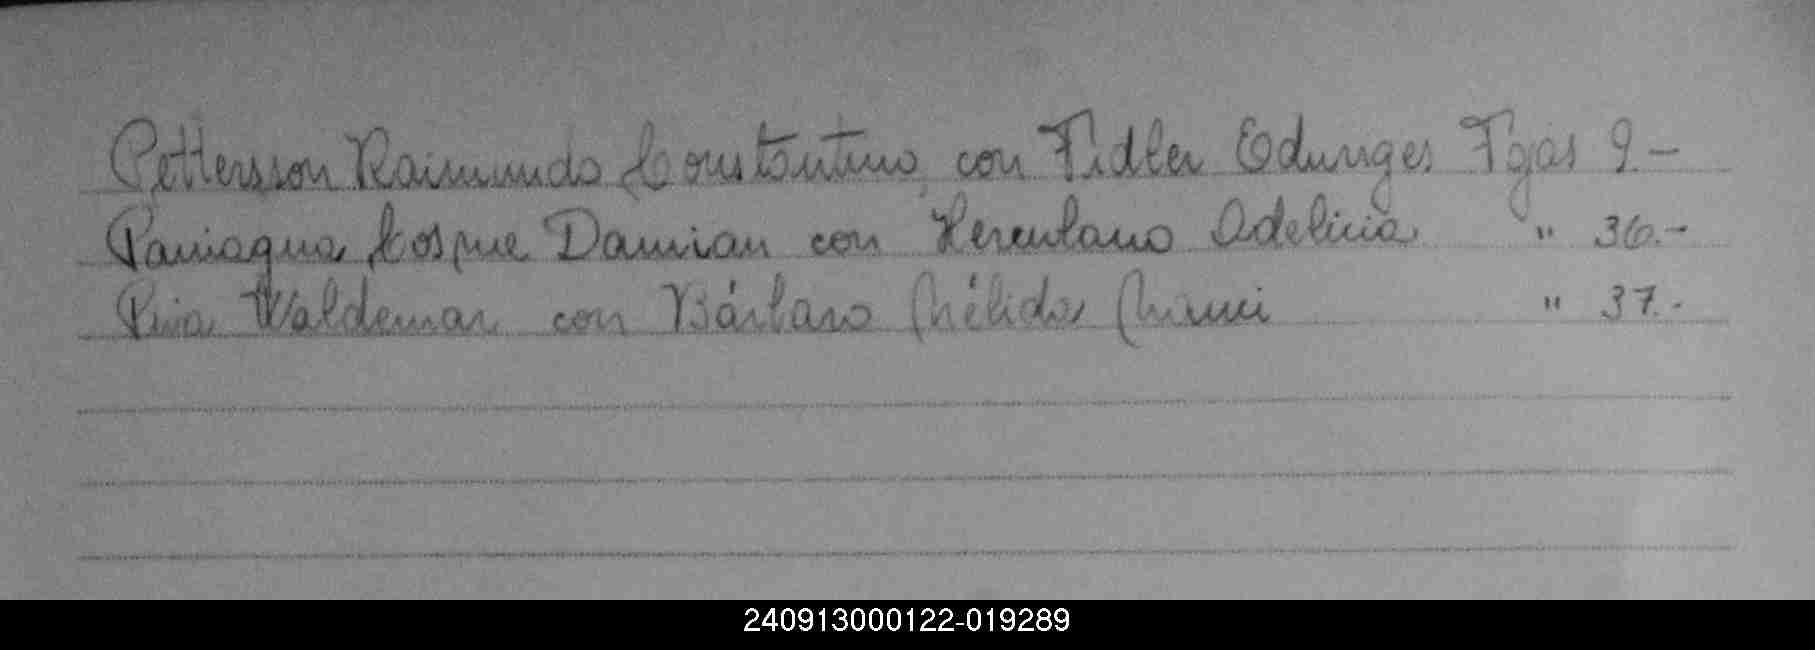 Pettersson Raimundo Constantino, con Fidler Eduviges Fojas 9.-
Paniagua Cosme Damian con Herculano Adelicia " 36.-
Piva Waldemar con Bárbaro Nélida Mimi " 37.-
240913000122-019289